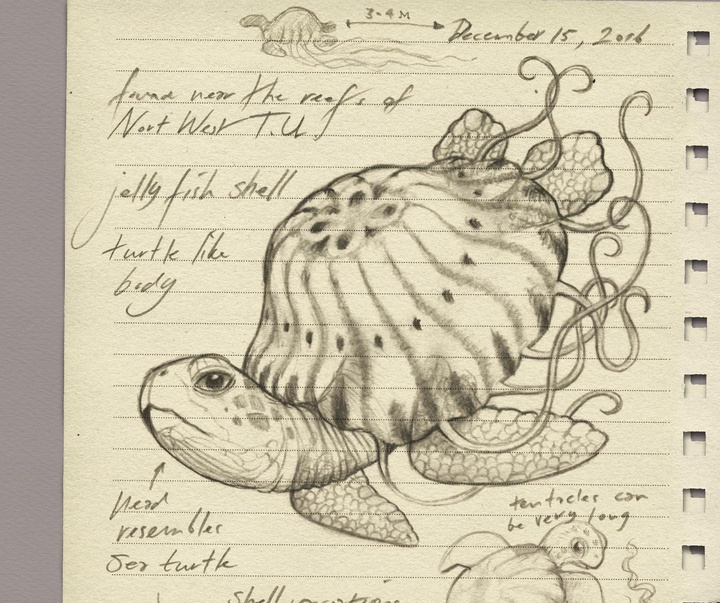 3-4 M
December 15, 2016
found near the reefs of
Nort West T.U
jelly fish shell
turtle like
body
head
resembles
sea turtle
tentacles can
be very long
shell variations